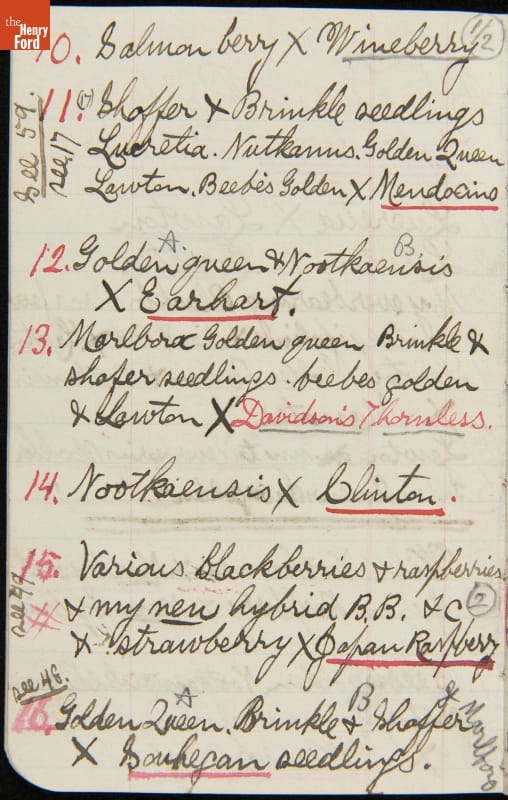 the Henry Ford
10. Salmon berry X Wineberry 1/2
11. Shaffer X Brinkle seedlings
See 59. see 17
Lucretia. Nutkanus. Golden Queen
Lawton. Beebes Golden X Mendocino
12. Golden queen & Nootkaensis
A B
X Earhart.
13. Marlboro Golden queen Brinkle &
shafer seedlings. beebes golden
& Lawton X Davidson's Thornless.
14. Nootkaensis X Clinton.
15. Various blackberries & raspberries
see 49
& my new hybrid B.B. &c 2
& strawberry X Japan Raspberry
see 46.
16. Golden Queen. Brinkle & Shaffer
A B & Marlboro
X Souhegan seedlings.